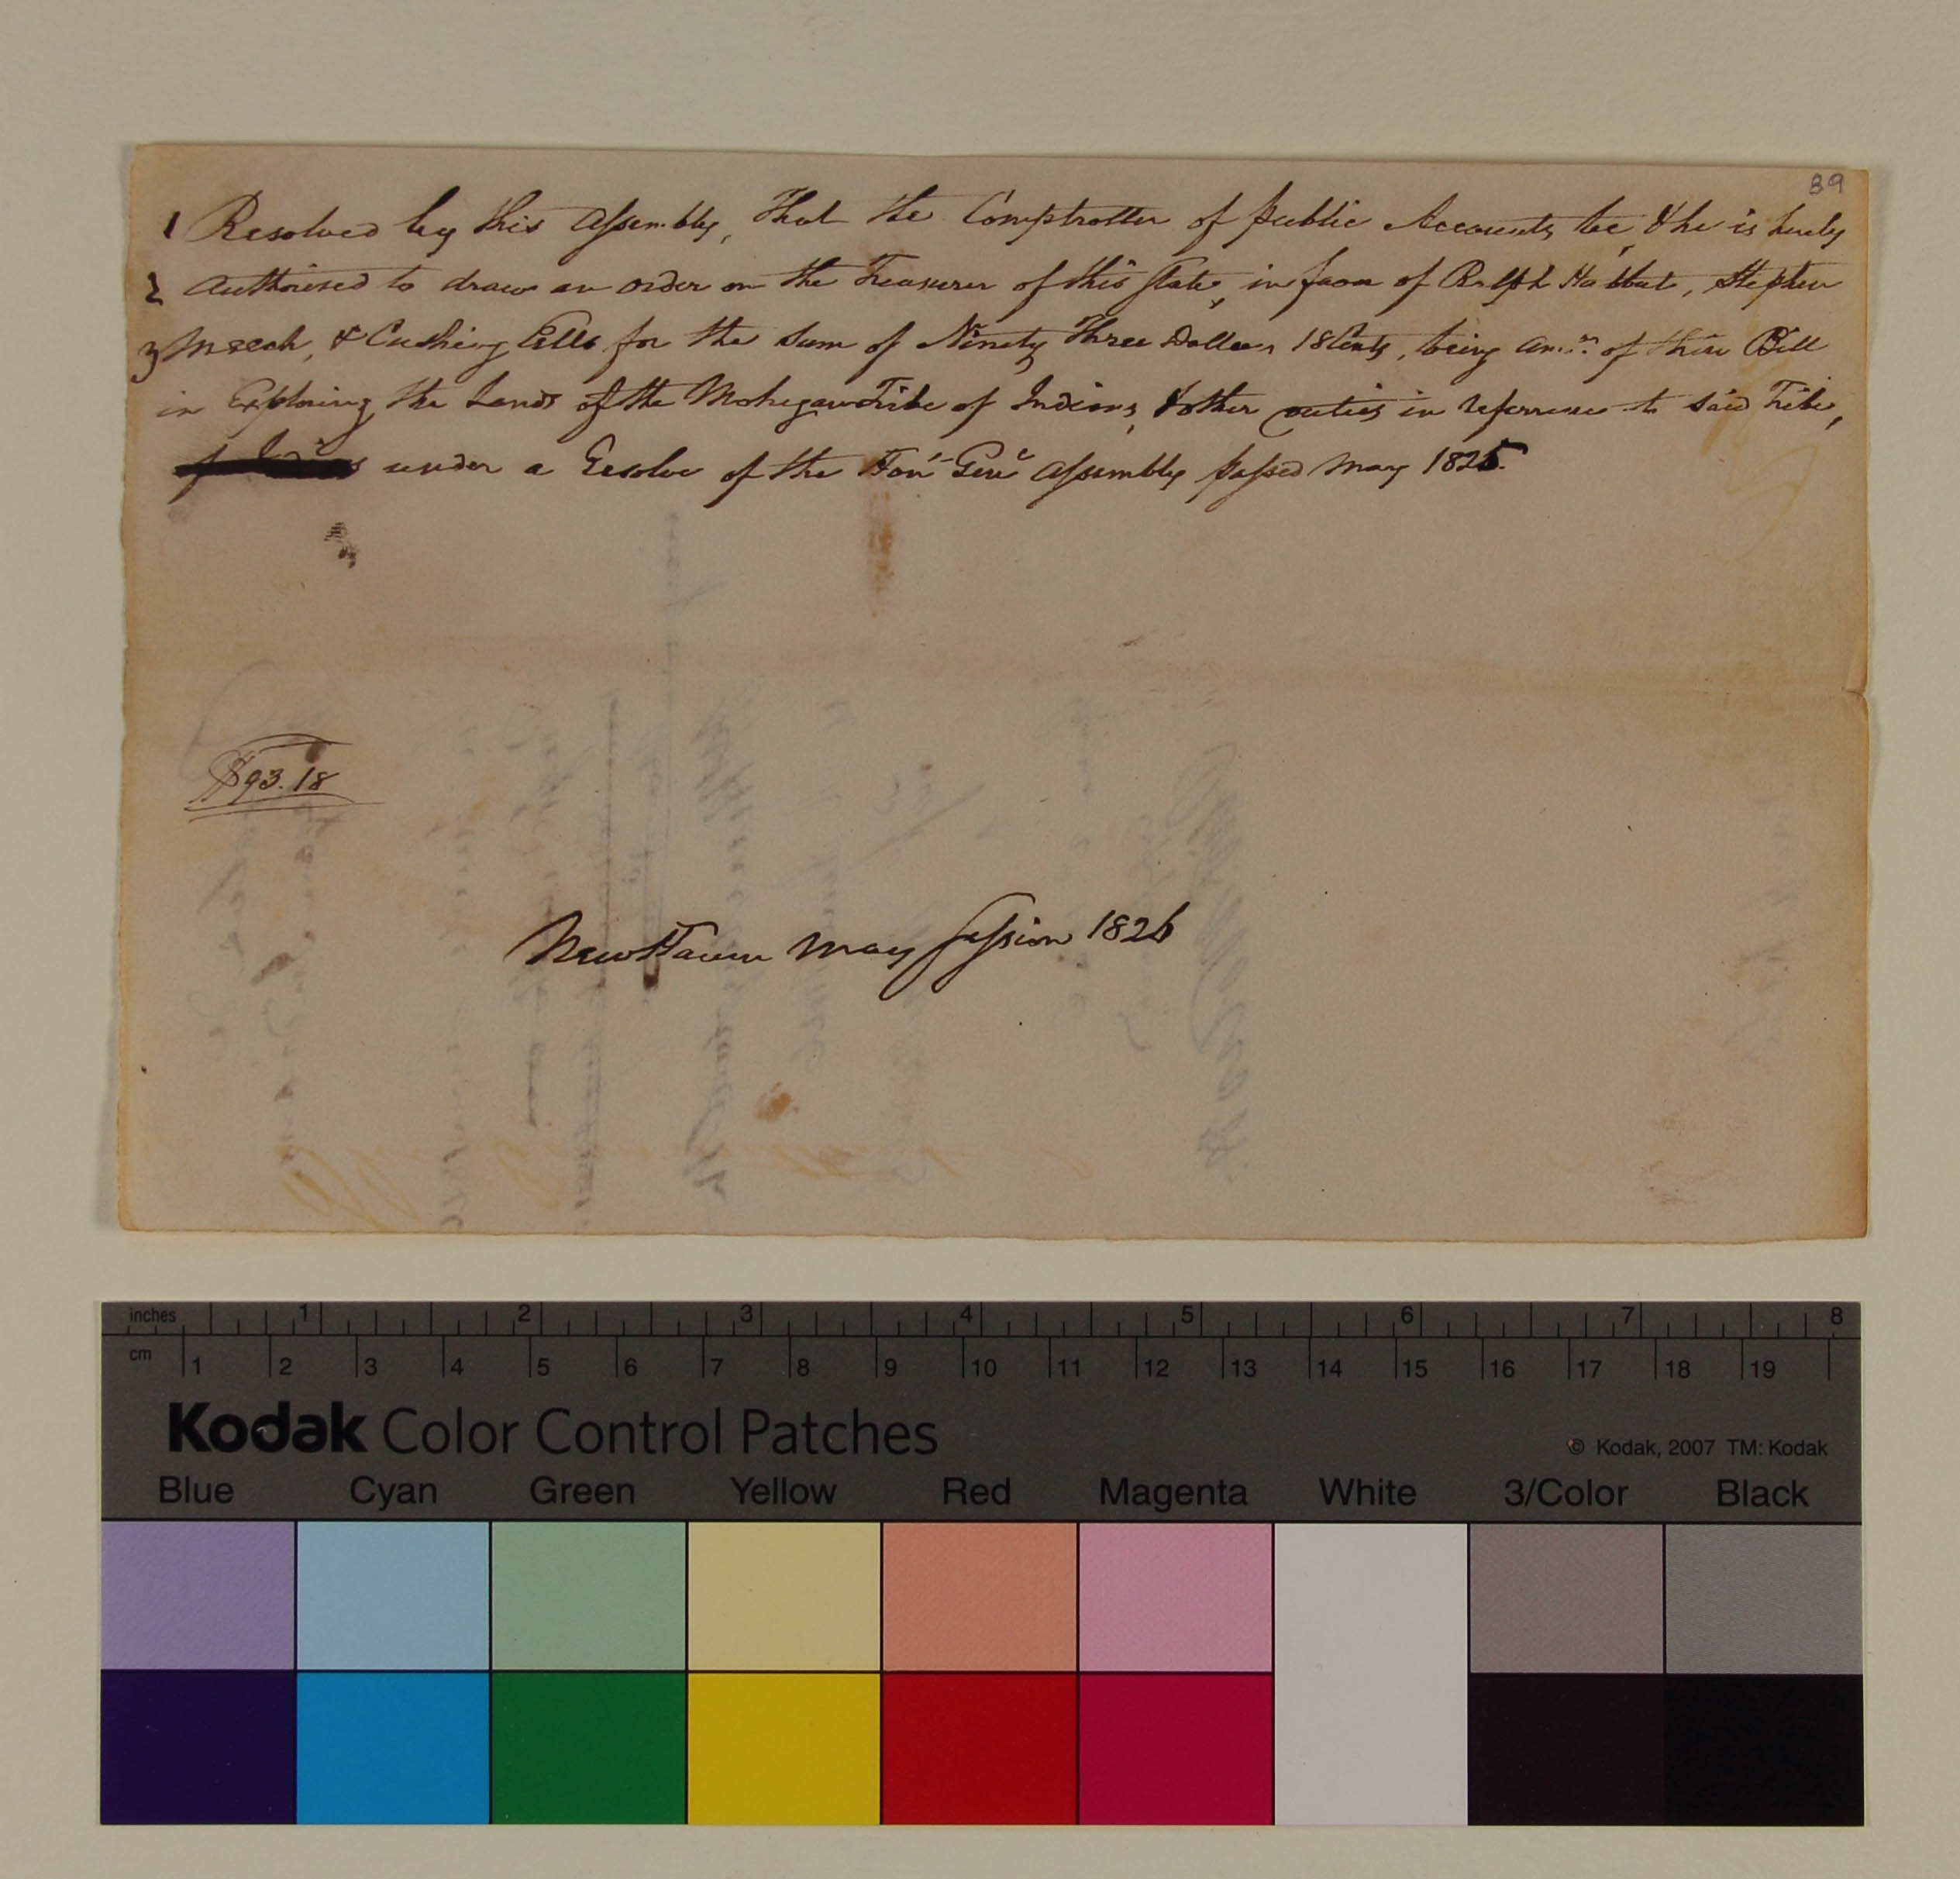 39
1 Resolved by this Assembly, That the Comptroller of public Accounts be, & he is hereby
2 Authorised to draw an order on the Treasurer of this State, in favor of Ralph Hurlbut, Stephen
3 Meech, & Cushing Eells for the Sum of Ninety Three Dollars 18 Cents, being am.t of their Bill
in Exploring the Lands of the Mohegan Tribe of Indians, & other duties in referrence to said Tribe,
under a Resolve of the Hon. Genl Assembly passed May 1825.
$93.18
New Haven May Session 1826
inches 1 2 3 4 5 6 7 8
cm 1 2 3 4 5 6 7 8 9 10 11 12 13 14 15 16 17 18 19
Kodak Color Control Patches
© Kodak, 2007 TM: Kodak
Blue Cyan Green Yellow Red Magenta White 3/Color Black